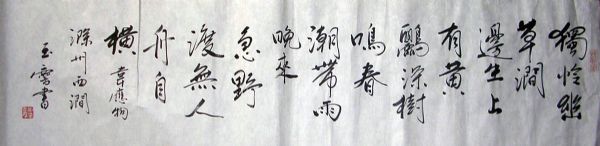 獨怜幽
草澗
邊生上
有黃
鸝深樹
鳴春
潮帶雨
晚來
急野
渡無人
舟自
橫 韋應物
滁州西澗
玉書